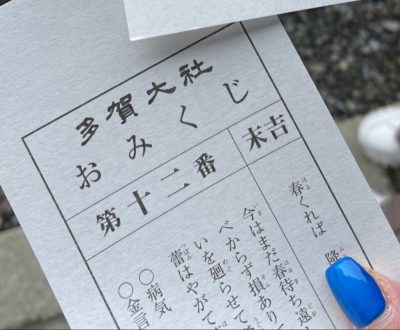 多賀大社
おみくじ
第十二番
末吉
春くれば 降
今はまだ春待ち遠
べからず損あり
いを廻らせて
蕾はやがて
○病気
○金言